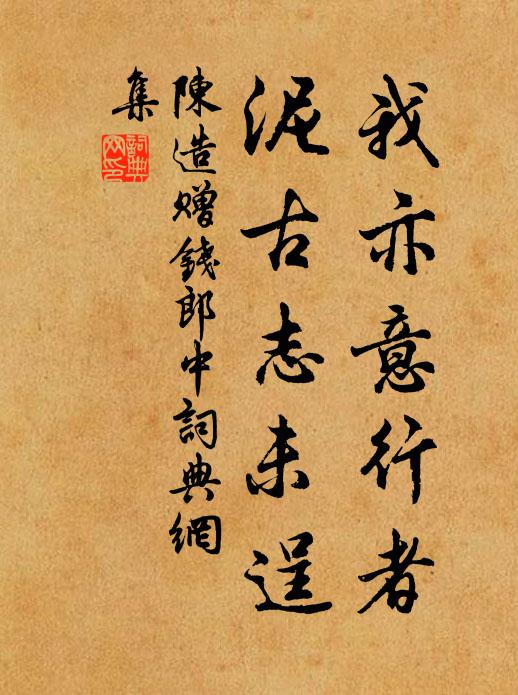 我亦意行者
泥古志未逞
陳造贈錢郎中詞典網
集
詞典
网印